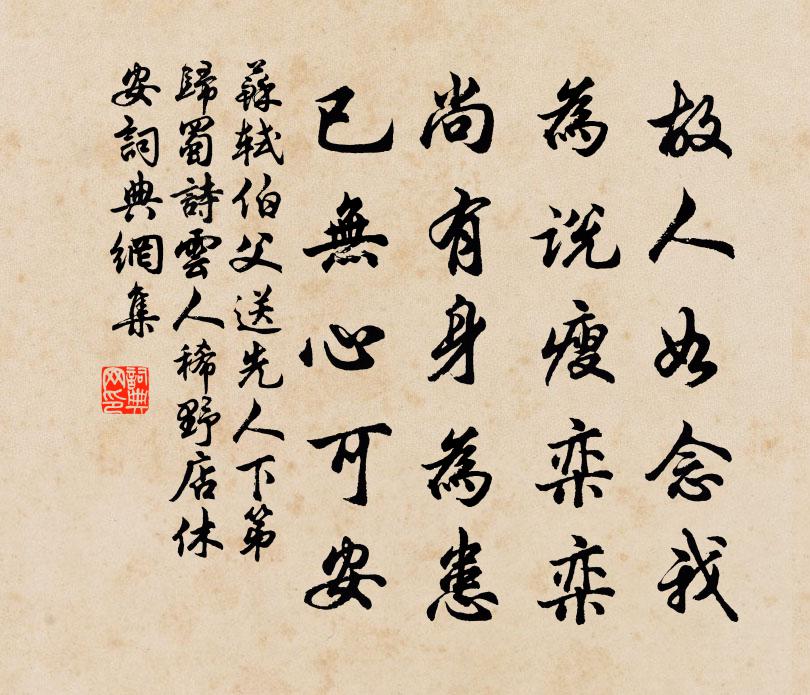 故人如念我
為说瘦栾栾
尚有身為患
已無心可安
蘇軾伯父送先人下第
歸蜀詩雲人稀野店休
安詞典網集
詞典網印